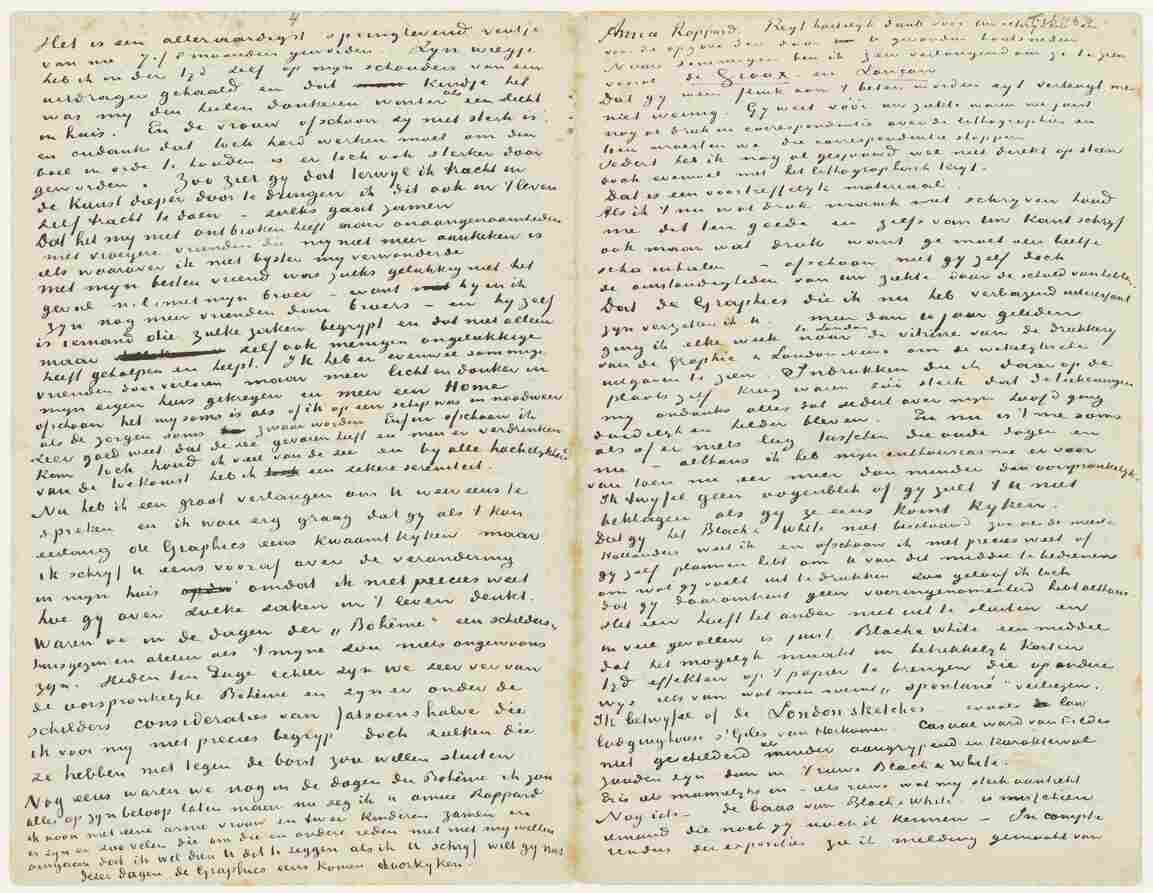 4
Het is een alleraardigst springlevend ventje
van nu 7 of 8 maanden geworden. Zyn wiegje
heb ik in der tyd zelf op myn schouders van een
uitdrager gehaald en dat kindje het
was my den heelen donkeren winter als een licht
in huis. En de vrouw ofschoon zy niet sterk is.
en ondanks dat toch hard werken moet om den
boel in orde te houden is er toch ook sterker door
geworden. Zoo ziet gy dat terwyl ik tracht in
de Kunst dieper door te dringen ik dit ook in 't leven
zelf tracht te doen – zulks gaat zamen
Dat het my niet ontbroken heeft aan onaangenaamheden
met vroegere vrienden die my niet meer aankeken is
iets waarover ik niet byster my verwonderde
Met myn besten vriend was zulks gelukkig niet het
geval n.l. met myn broer – want hy en ik
zyn nog meer vrienden dan broers – en hy zelf
is iemand die zulke zaken begrypt en dat niet alleen
maar zelf ook menigen ongelukkige
heeft geholpen en helpt. Ik heb er evenwel sommige
vrienden door verloren maar meer licht en donker in
myn eigen huis gekregen en meer een Home
ofschoon het my soms is als of ik op een schip was in noodweer
als de zorgen soms zwaar worden Enfin ofschoon ik
zeer goed weet dat de zee gevaren heeft en men er verdrinken
kan toch houd ik veel van de zee en by alle hachelykheid
van de toekomst heb ik een zekere sereniteit.
Nu heb ik een groot verlangen om U weer eens te
spreken en ik wou erg graag dat gy als 't kon
eerlang de Graphics eens kwaamt kyken maar
ik schryf U eens vooraf over de verandering
in myn huis omdat ik niet precies weet
hoe gy over zulke zaken in 't leven denkt.
Waren we in de dagen der „Bohème" een schilders„
huisgezin en atelier als 't myne zou niets ongewoons
zyn. Heden ten Dage echter zyn we zeer ver van
de oorspronkelyke Bohème en zyn er onder de
schilders consideraties van fatsoenshalve die
ik voor my niet precies begryp doch zulken die
ze hebben niet tegen de borst zou willen stuiten.
Nog eens waren we nog in de dagen der Bohème ik zou
alles op zyn beloop laten maar nu zeg ik U amice Rappard
ik woon met eene arme vrouw en twee kinderen zamen en
er zyn er zoo velen die om die en andere reden niet met my willen
omgaan dat ik wel dien U dit te zeggen als ik U schryf wilt gy nu
dezer dagen de Graphics eens komen doorkyken.
Amice Rappard. Krygt hartelyk dank voor uw schryven en
voor de opgave der door U gevonden houtsneden
Naar sommigen ben ik zeer verlangend om ze te zien
vooral de Groux en Lançon
Dat gy weer flink aan 't beter worden zyt verheugt me
niet weinig. Gy weet vóór uw ziekte waren we juist
nog al druk in correspondentie over de lithographies en
toen moesten we die correspondentie stoppen
Sedert heb ik nog al gesjouwd wel niet direkt op steen
doch evenwel met het lithographisch kryt.
Dat is een voortreffelyk materiaal
Als ik 't nu wat druk maak met schryven houd
me dat ten goede en zelfs van Uw kant schryf
ook maar wat druk want ge moet een heele
scha inhalen – ofschoon niet gy zelf doch
de omstandigheden van uw ziekte daar de schuld van hebben.
Dat de Graphics die ik nu heb verbazend interessant
zyn verzeker ik U. meer dan 10 jaar geleden
ging ik elke week te Londen naar de vitrine van de drukkery
van de Graphic & London News om de wekelyksche
uitgaven te zien Indrukken die ik daar op de
plaats zelf kreeg waren zóó sterk dat de teekeningen
my ondanks alles dat sedert over myn hoofd ging
duidelyk en helder bleven. En nu is 't me soms
als of er niets lag tusschen die oude dagen en
nu – althans ik heb myn enthousiasme er voor
van toen nu eer meer dan minder dan oorspronkelyk.
Ik twyfel geen oogenblik of gy zult 't U niet
beklagen als gy ze eens komt kyken.
Dat gy het Black & White niet beschouwd zoo als de meeste
Hollanders weet ik en ofschoon ik niet precies weet of
gy zelf plannen hebt om U van dit middel te bedienen
om wat gy voelt uit te drukken zoo geloof ik toch
dat gy daaromtrent geen vooringenomenheid hebt althans.
Het een hoeft het ander niet uit te sluiten en
in veel gevallen is juist Black & White een middel
dat het mogelyk maakt in betrekkelyk korten
tyd effekten op 't papier te brengen die op andere
wys iets van wat men noemt „spontané" verliezen.
Ik betwyfel of de London sketches – zooals low
lodginghouse St Giles van Herkomer. Casual ward van Fildes
niet geschilderd minder aangrypend en karaktervol
zouden zyn dan in 't ruwe Black & White.
Er is iets mannelyks in – iets ruws wat my sterk aantrekt
Nog iets – de baas van Black & White is misschien
iemand die noch gy noch ik kennen – In compte
rendus der exposities zie ik melding gemaakt van